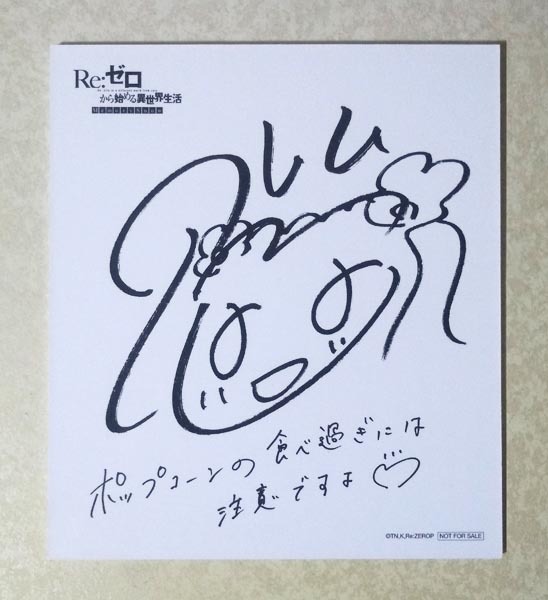 Re:ゼロ
から始める異世界生活
Memory Snow
レム
ポップコーンの食べ過ぎには
注意ですよ♡
©TN,K,Re:ZEROP NOT FOR SALE